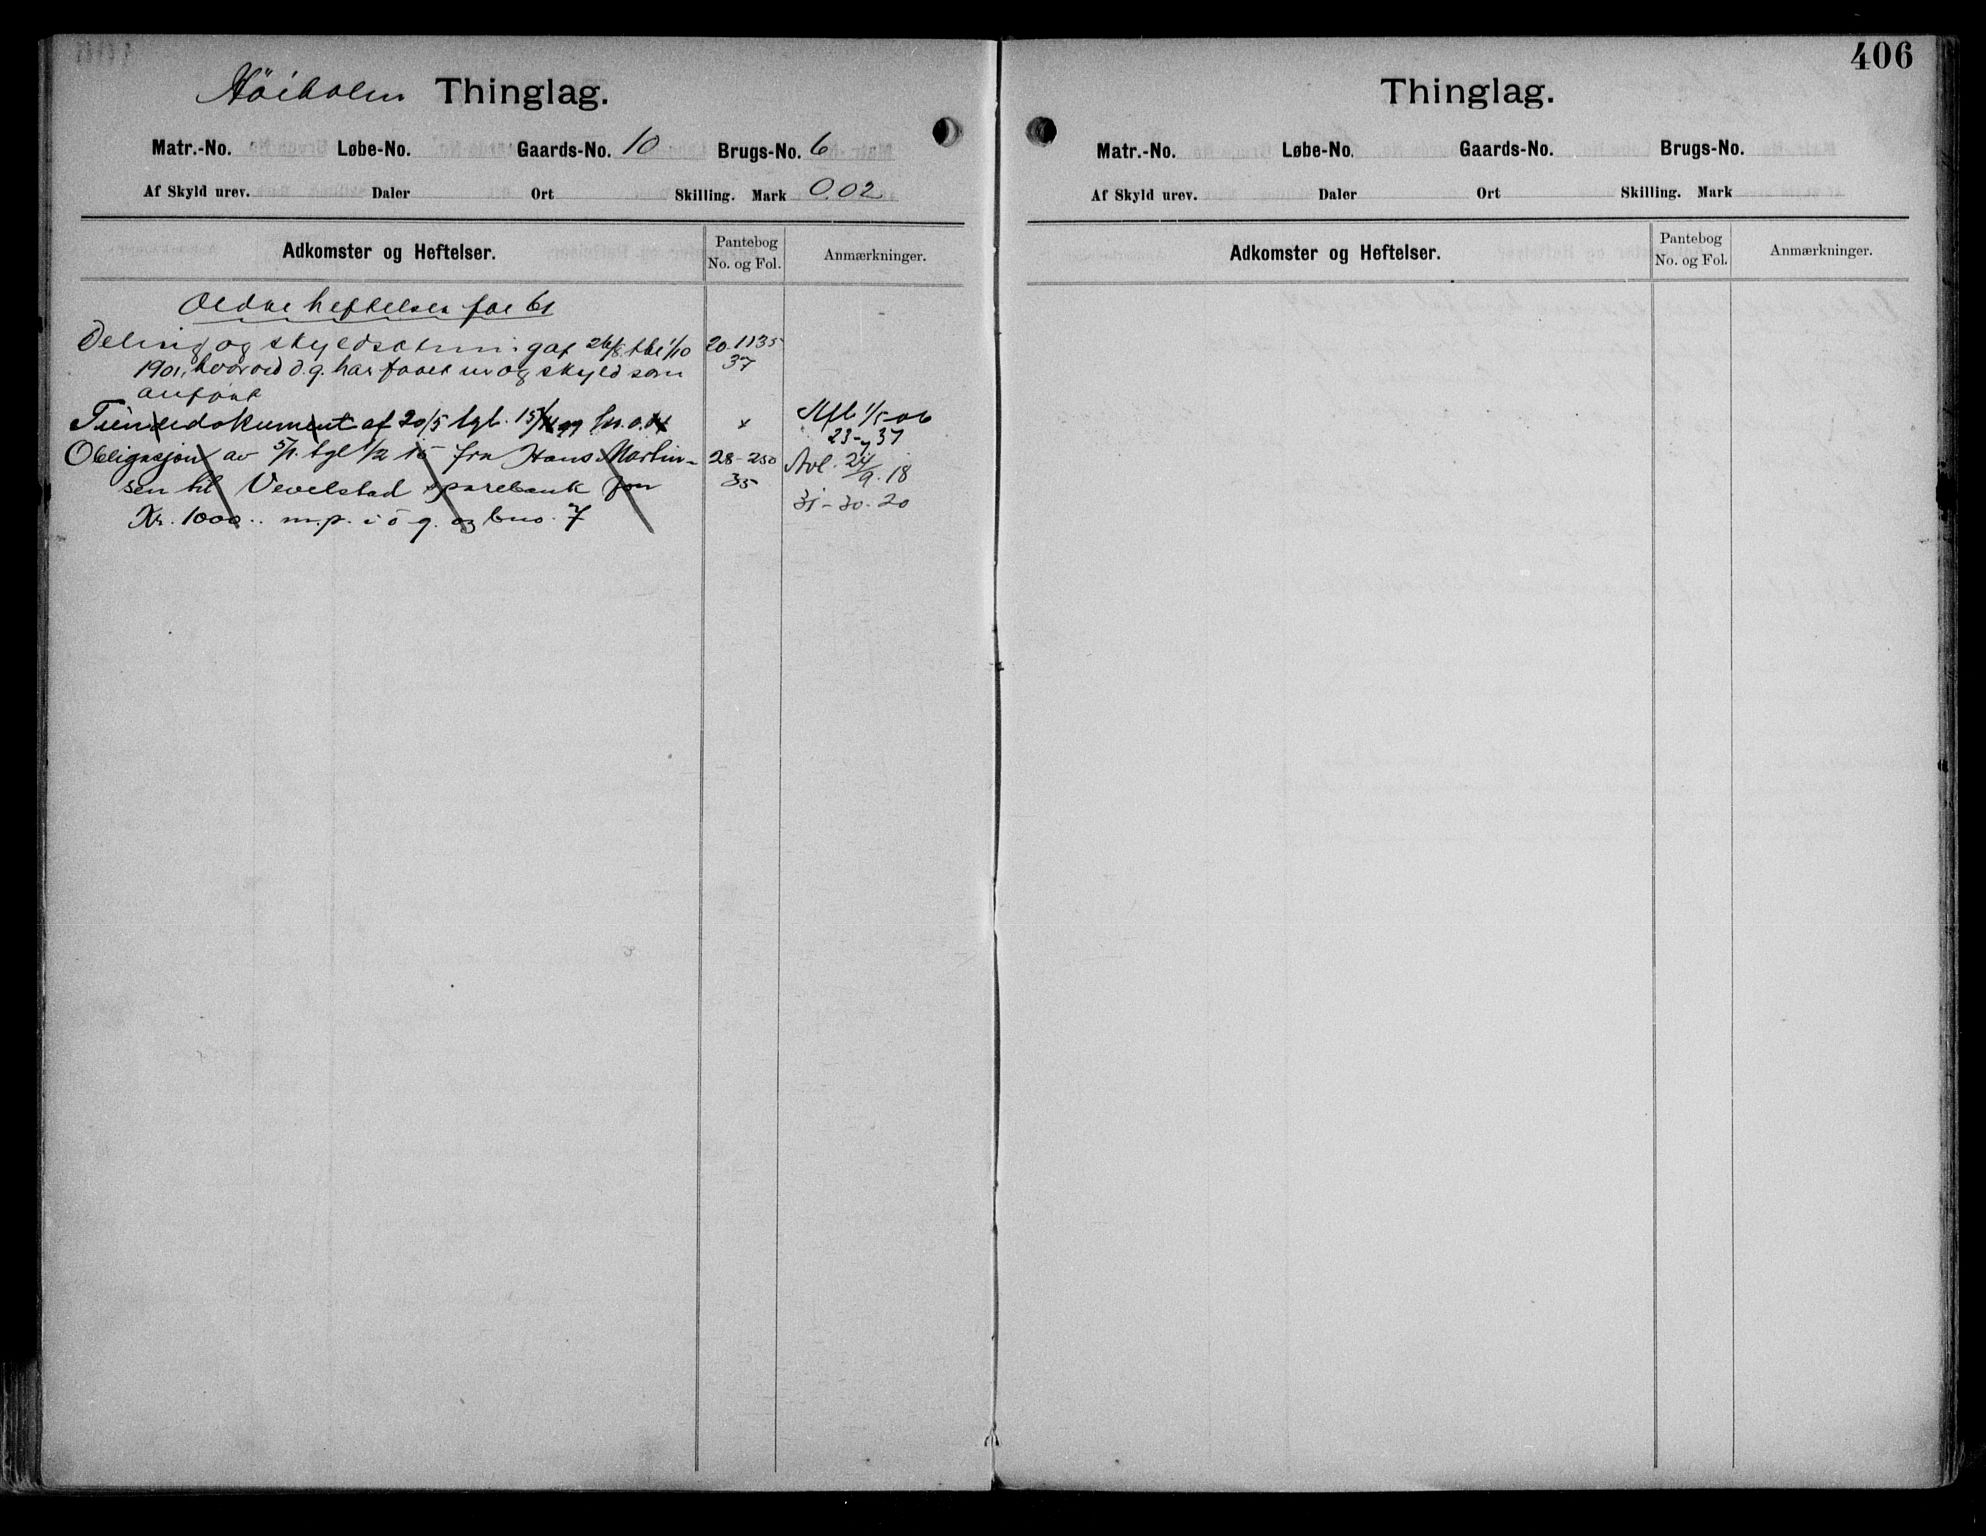 406
Höiholm Thinglag.
Matr.-No. Løbe-No. Gaards-No. 10 Brugs-No. 6
Af Skyld urev. Daler Ort Skilling. Mark 0.02
Adkomster og Heftelser. Pantebog No. og Fol. Anmærkninger.
Ældre heftelser for b1
Deling og skyldsætning af 26/8 tbl 1/10 20-1135
1901, hvorved d.g. har faaet nr og skyld som 37
anført
dokument af 20/5 tgl. 15/ 99 Afl. 1/5-06
23-37
Obligasjon av 5/1. tgl 1/2 15 fra Hans Martin- 28-250 Avl. 24/9.18
sen til Vevelstad sparebank for 35
31-30.20
Kr. 1000.. m.p. i d g. og bno. 7
Thinglag.
Matr.-No. Løbe-No. Gaards-No. Brugs-No.
Af Skyld urev. Daler Ort Skilling. Mark
Adkomster og Heftelser. Pantebog No. og Fol. Anmærkninger.